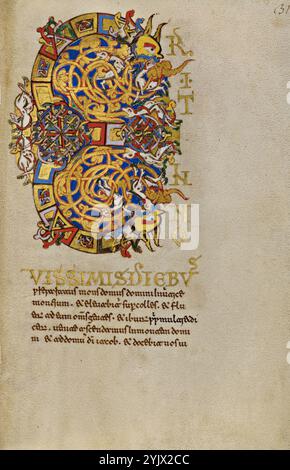 (31
E
R
I T
I N
N
O
VISSIMIS DIEBVS
preparatus mons domus domini in uertice
montium. & eleuabitur sup colles. & flu
ent ad eum oms gentes. & ibunt multi & di
cent. uenite ascendamus in montem domi
ni & ad domu di iacob. & docebit nos ui
alamy - 2YJX2CC